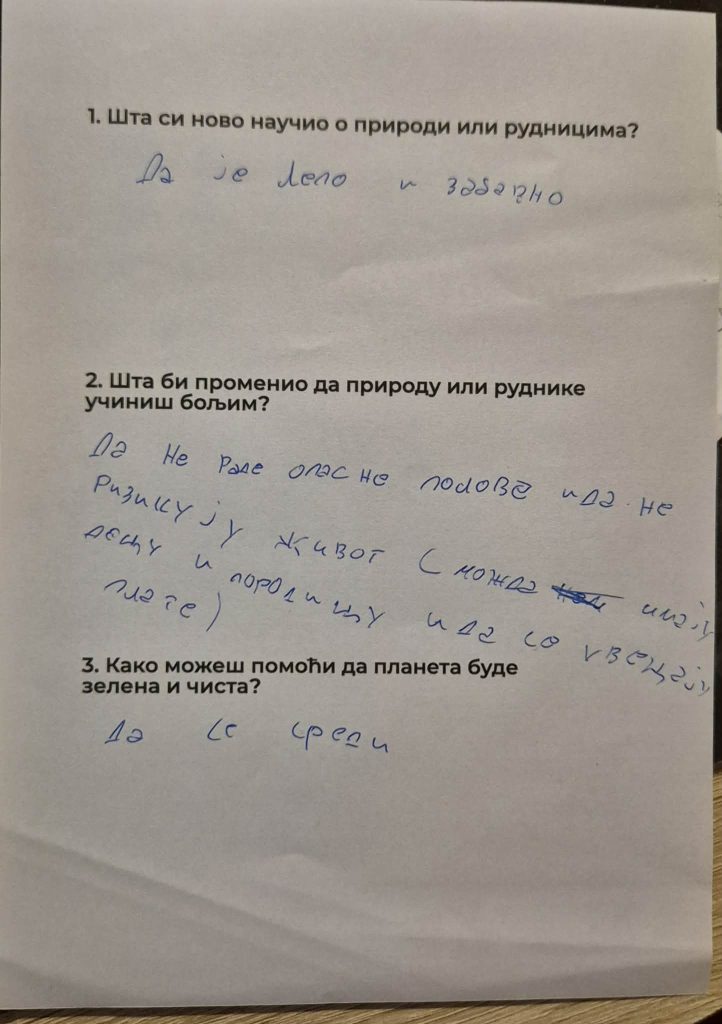 1. Шта си ново научио о природи или рудницима?
Да је лепо и забавно
2. Шта би променио да природу или руднике
учиниш бољим?
Да не раде опасне полове и да не
ризикују живот (можда имају
децу и породицу и да се увецају
плате)
3. Како можеш помоћи да планета буде
зелена и чиста?
Да се среди